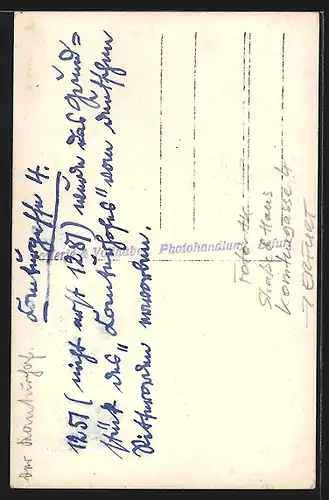 Der Komturhof.
Komturgasse 4.
1251 (nicht erst 1287) wurde das Grund=
stück des „Komturhofes" vom deutschen
Ritterorden erworben.
Photohandlung, Erfurt
Foto
Straße + Haus
Komturgasse 4
Erfurt